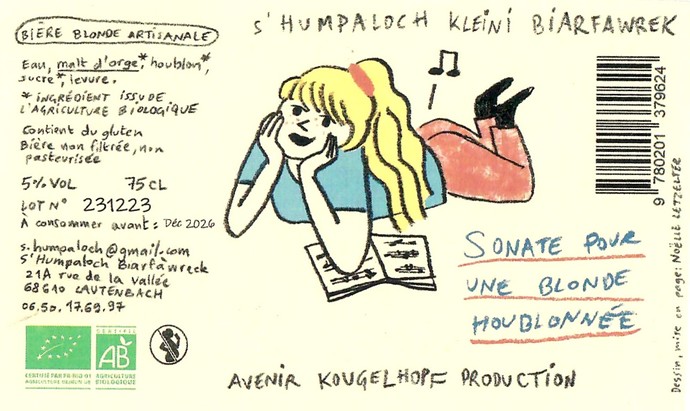 BIÈRE BLONDE ARTISANALE
Eau, malt d'orge*, houblon*,
sucre*, levure.
* INGRÉDIENT ISSU DE
L'AGRICULTURE BIOLOGIQUE
Contient du gluten
Bière non filtrée, non
pasteurisée
5% VOL 75 CL
LOT N° 231223
À consommer avant: Déc 2026
s.humpaloch@gmail.com
S'Humpaloch Biarfàwreck
21A rue de la vallée
68610 LAUTENBACH
06.50.17.69.97
CERTIFIÉ PAR FR-BIO-01
AGRICULTURE
CERTIFIÉ
AB
AGRICULTURE
BIOLOGIQUE
S'HUMPALOCH KLEINI BIARFAWREK
SONATE POUR
UNE BLONDE
HOUBLONNÉE
AVENIR KOUGELHOPF PRODUCTION
9 780201 379624
Dessin, mise en page: NOËLLE LETZELTER